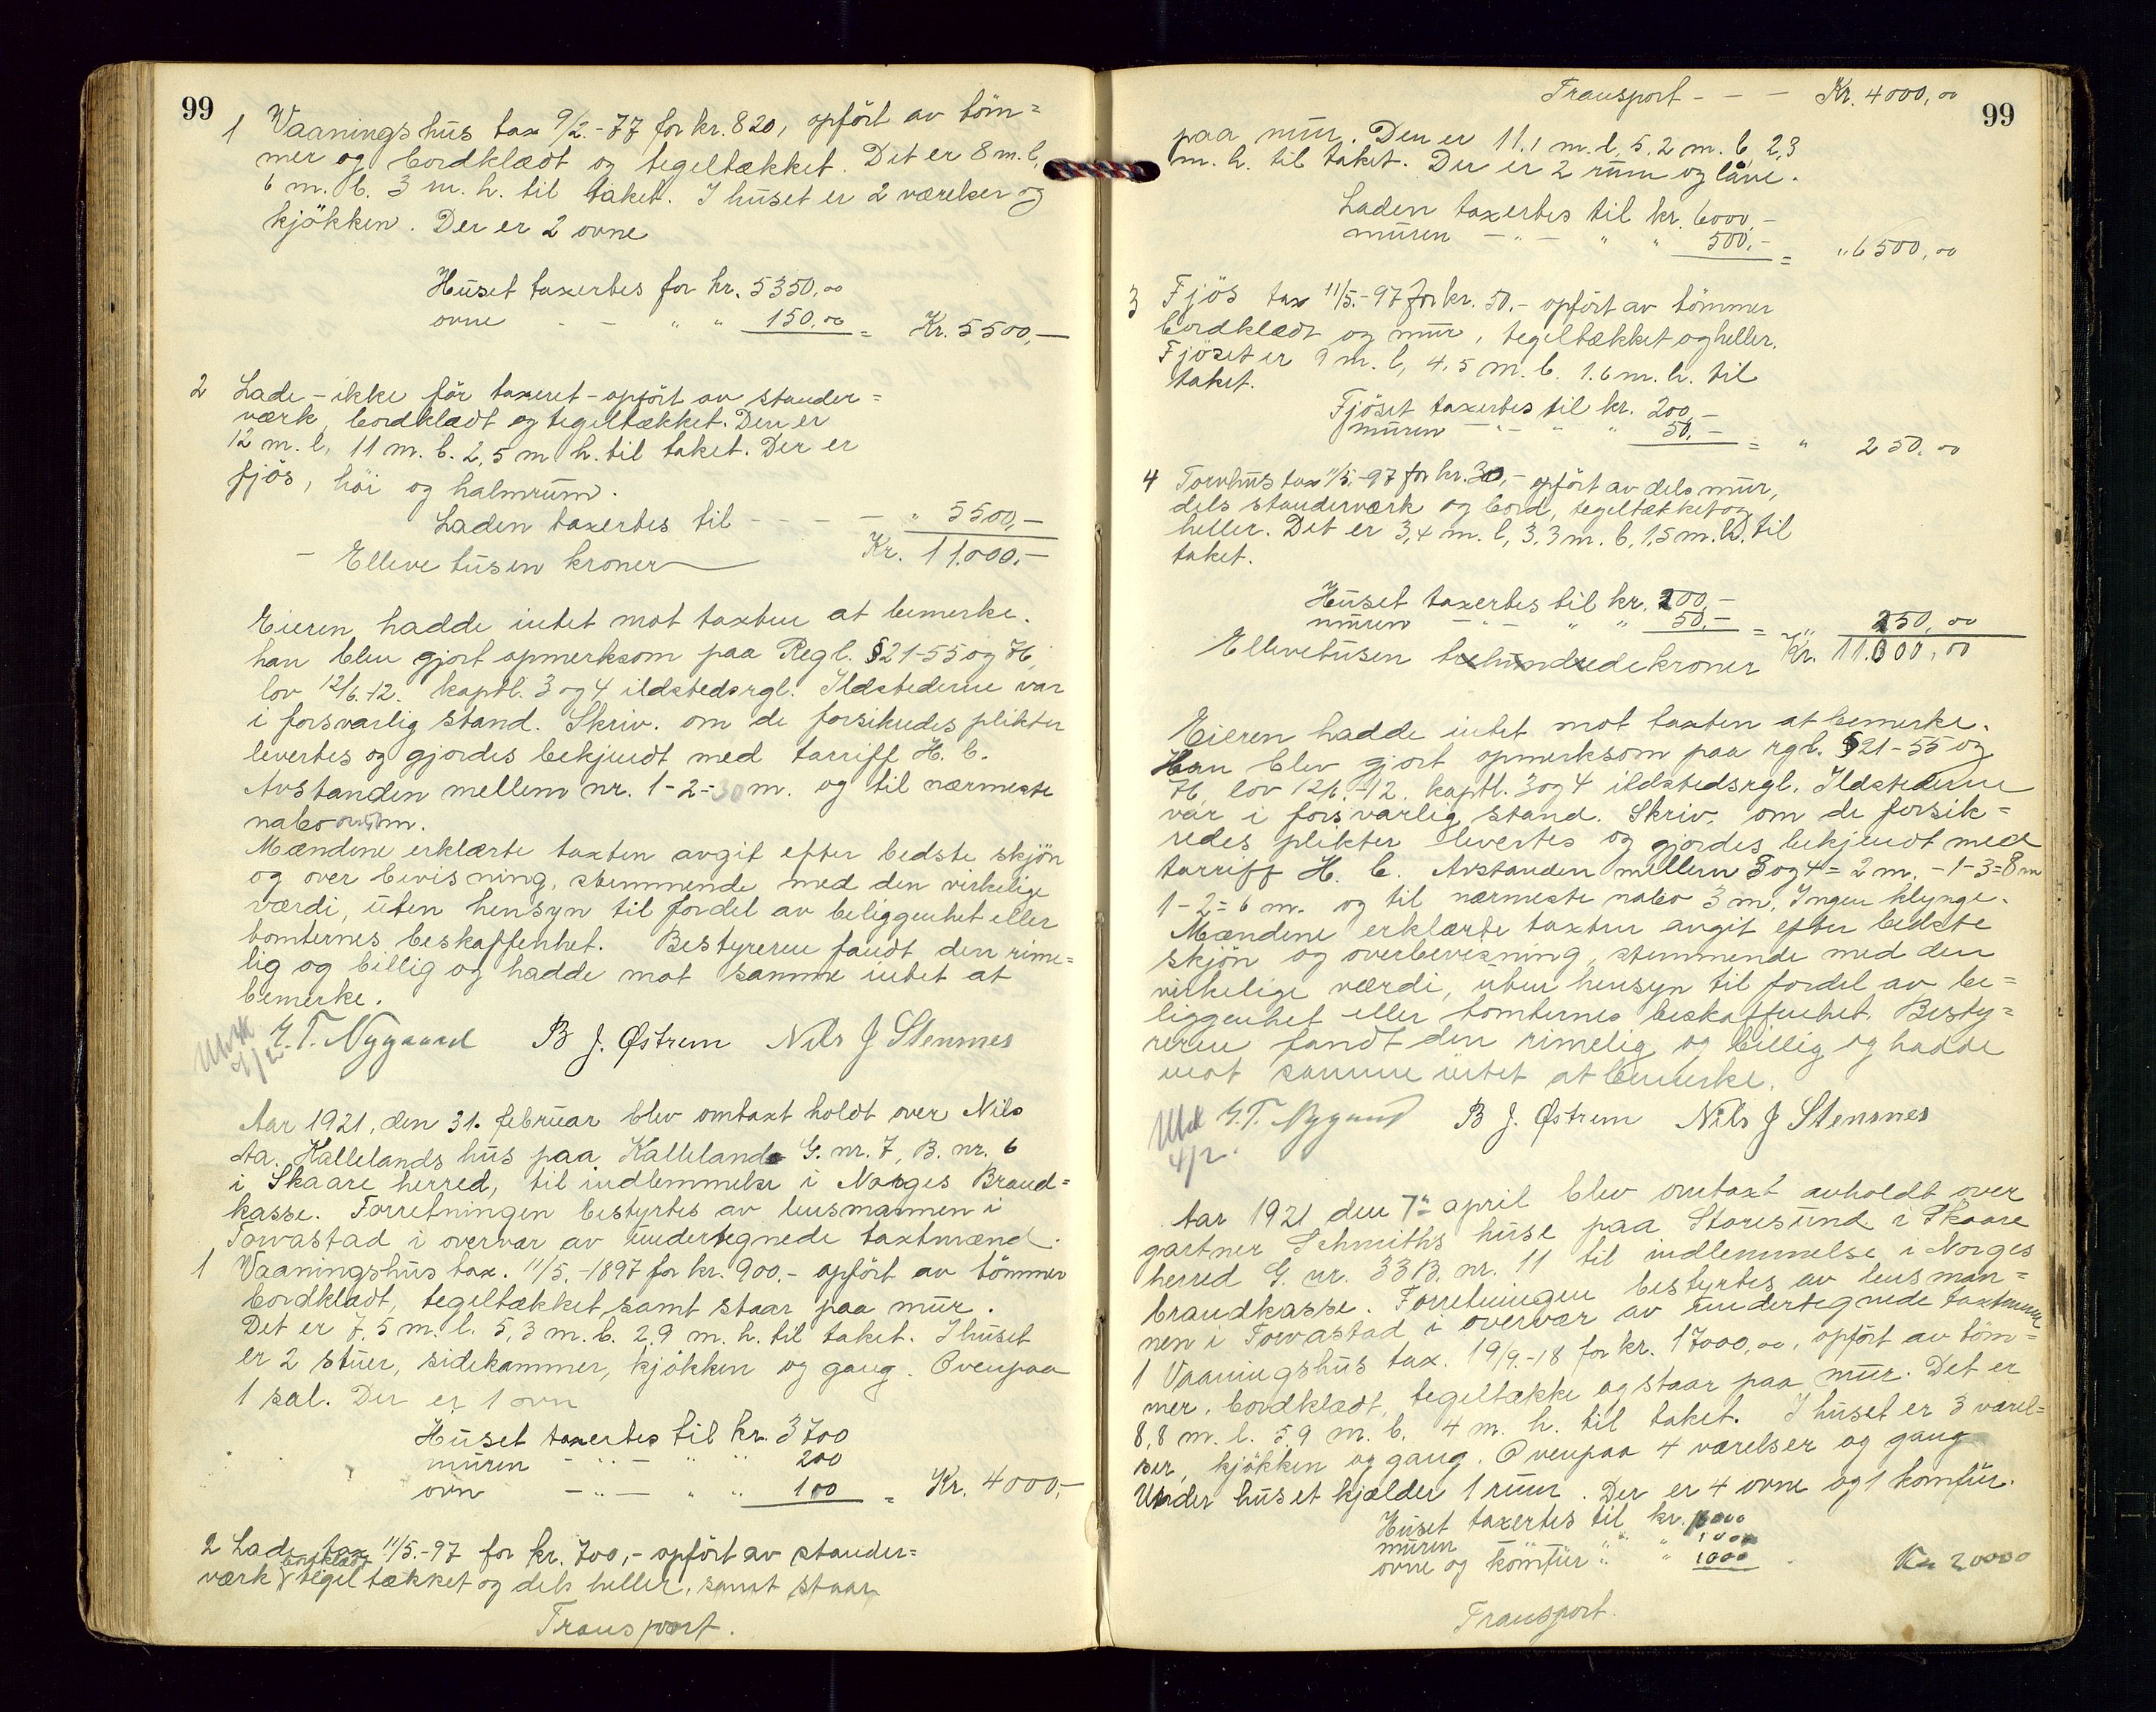 99
1 Vaaningshus tax 9/2.-77 for kr. 820, opført av tøm=
mer og bordklædt og tegeltækket. Det er 8 m. l,
6 m. b. 3 m. h. til taket. I huset er 2 værelser og
kjøkken. Der er 2 ovne
Huset taxertes for kr. 5350,00
ovne - - " " 150,00 = Kr. 5500,—
2 Lade - ikke før taxeret - opført av stander=
værk, bordklædt og tegeltækket. Den er
12 m. l, 11 m. b. 2,5 m h. til taket. Der er
fjøs, høi og halmrum.
Laden taxertes til - - - - " 5500,—
— Elleve tusen kroner — Kr. 11.000.—
Eieren hadde intet mot taxten at bemerke.
han blev gjort opmerksom paa Regl. § 21-55 og H,
lov 12/6.-12. kaptl. 3 og 4 ildstedsrgl. Ildstederne var
i forsvarlig stand. Skriv. om de forsikredes plikter
levertes og gjordes bekjendt med tarriff H. b.
Avstanden mellem nr. 1-2=30 m. og til nærmeste
nabo m.
Mændene erklærte taxten avgit efter bedste skjøn
og over bevisning, stemmende med den virkelige
værdi, uten hensyn til fordel av beliggenhet eller
tomternes beskaffenhet. Bestyreren fandt den rime=
lig og billig og hadde mot samme intet at
bemerke.
G. T. Nygaard B J. Østrem Nils J Stensnes
Aar 1921, den 31. februar blev omtaxt holdt over Nils
Aa. Kallelands hus paa Kalleland G. nr. 7, B. nr. 6
i Skaare herred, til indlemmelse i Norges Brand=
kasse. Forretningen bestyrtes av lensmannen i
Torvastad i overvær av undertegnede taxtmænd.
1 Vaaningshus tax. 11/5.-1897 for kr. 900.- opført av tømmer
bordklædt, tegeltækket samt staar paa mur.
Det er 7,5 m. l. 5,3 m. b. 2,9 m. h. til taket. I huset
er 2 stuer, sidekammer, kjøkken og gang. Ovenpaa
1 sal. Der er 1 ovn
Huset taxertes til kr. 3700
muren - " - " " 200
ovn - " - " " 100 = Kr. 4000,-
2 Lade tax 11/5.-97 for kr. 700,- opført av stander=
bordklædt
værk & tegeltækket og dels heller, samt staar
Transport.
Transport - - - Kr. 4000,00
99
paa mur. Den er 11,1 m. l, 5,2 m. b, 2,3
m. h. til taket. Der er 2 rum og låve.
Laden taxertes til kr. 6000,-
muren - " - " " 500,- = " 6500,00
3 Fjøs tax 11/5.-97 for kr. 50,- opført av tømmer
bordklædt og mur, tegeltækket og heller.
Fjøset er 9 m. l, 4,5 m. b. 1.6 m. h. til
taket.
Fjøset taxertes til kr. 200,-
muren - " - " " 50,- = " 250,00
4 Torvhus tax 11/5.-97 for kr. 30,- opført av dels mur,
dels standerværk og bord, tegeltækket og
heller. Det er 3,4 m. l, 3,3 m. b, 1,5 m. h. til
taket.
Huset taxertes til kr. 200,-
muren - " - " " 50,- = " 250,00
Ellevetusen kroner Kr. 11.000,00
Eieren hadde intet mot taxten at bemerke.
Han blev gjort opmerksom paa rgl. § 21-55 og
H, lov 12/6.-12. kaptl. 3 og 4 ildstedsrgl. Ildstederne
var i forsvarlig stand. Skriv. om de forsik=
redes plikter levertes og gjordes bekjendt med
tarriff H. b. Avstanden mellem 3 og 4 = 2 m. - 1-3=8 m
1-2=6 m. og til nærmeste nabo 3 m. Ingen klynge.
Mændene erklærte taxten avgit efter bedste
skjøn og overbevisning, stemmende med den
virkelige værdi, uten hensyn til fordel av be=
liggenhet eller tomternes beskaffenhet. Besty=
reren fandt den rimelig og billig og hadde
mot samme intet at bemerke.
G. T. Nygaard B J. Østrem Nils J Stensnes
4/2.
Aar 1921 den 7de april blev omtaxt avholdt over
gartner Schmiths huse paa Storesund i Skaare
herred G. nr. 33 B. nr. 11 til indlemmelse i Norges
brandkasse. Forretningen bestyrtes av lensman=
nen i Torvastad i overvær av undertegnede taxtmenn
1 Vaaningshus tax. 19/9.-18 for kr. 17000,00, opført av tøm=
mer, bordklædt, tegeltække og staar paa mur. Det er
8,8 m. l. 5,9 m. b. 4 m. h. til taket. I huset er 3 værel=
ser, kjøkken og gang. Ovenpaa 4 værelser og gang
Under huset kjælder 1 rum. Der er 4 ovne og 1 komfur.
Huset taxertes til kr.
muren " "
ovne og komfur " " 1000 Kr 20000
Transport.